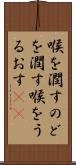 喉を潤すのど
を潤す喉をう
るおす